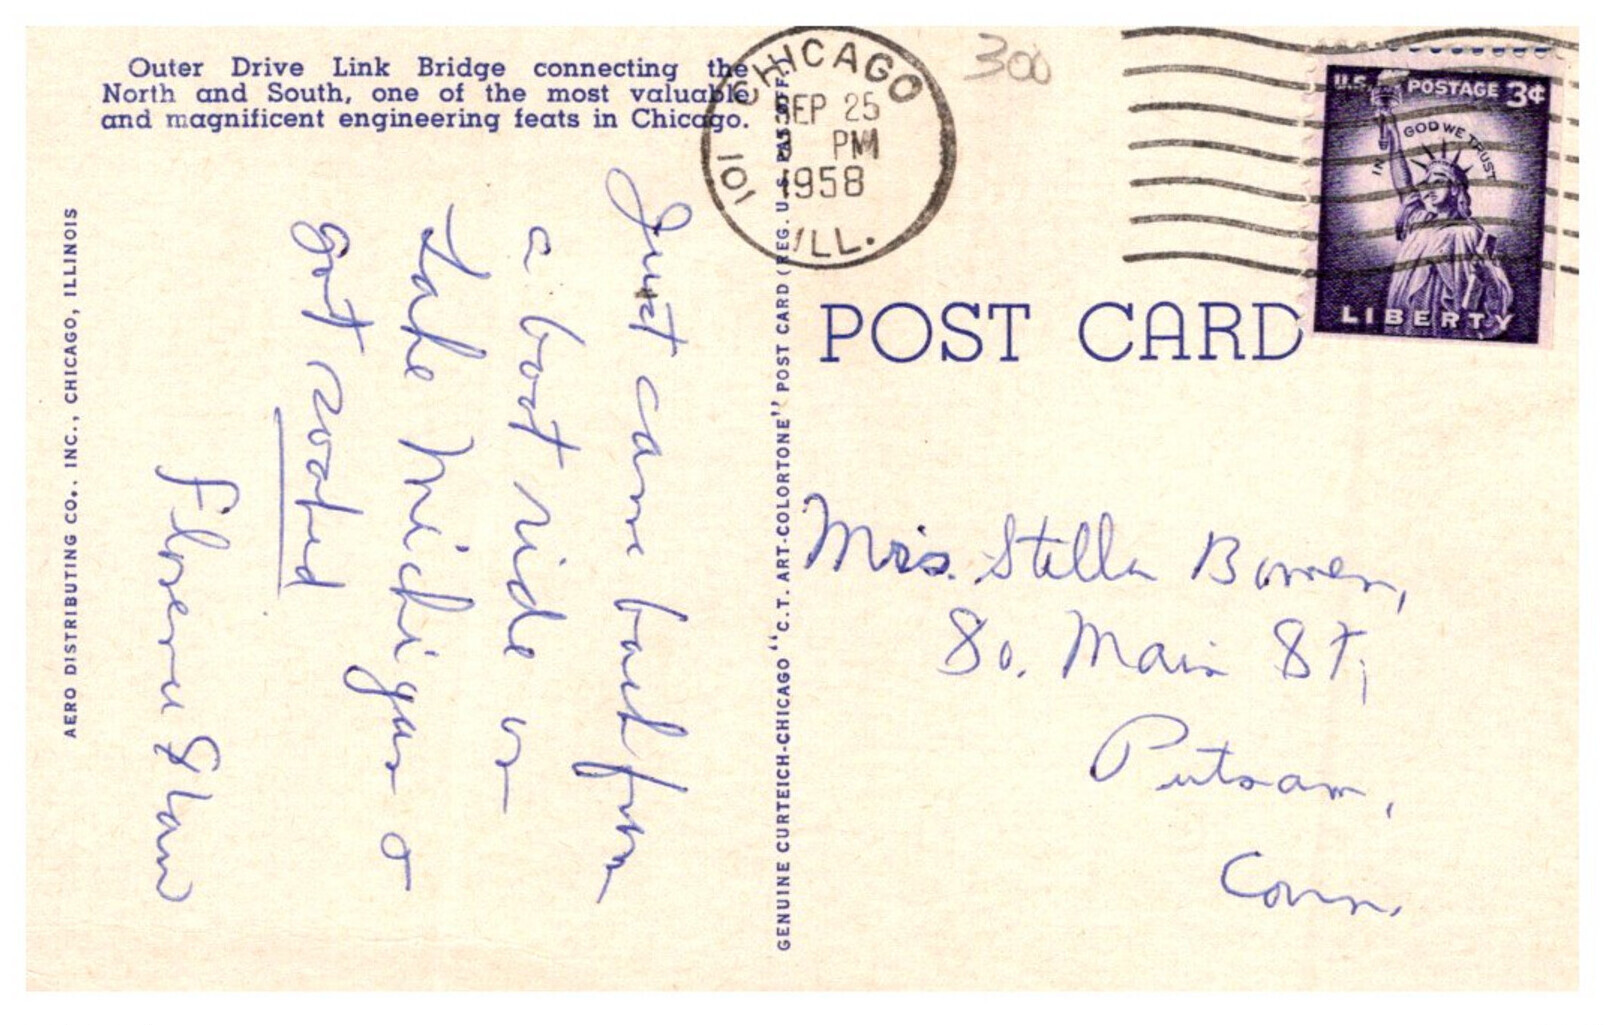 Outer Drive Link Bridge connecting the
North and South, one of the most valuable
and magnificent engineering feats in Chicago.
CHICAGO
101
SEP 25
PM
1958
ILL.
300
U.S. POSTAGE 3¢
IN GOD WE TRUST
LIBERTY
POST CARD
Just came back from
a boat ride on
Lake Michigan &
got soaked
Florence &
Mrs. Stella Bowen,
So. Main St,
Putnam,
Conn.
AERO DISTRIBUTING CO., INC., CHICAGO, ILLINOIS
GENUINE CURTEICH-CHICAGO "C.T. ART-COLORTONE" POST CARD (REG. U.S. PAT. OFF.)